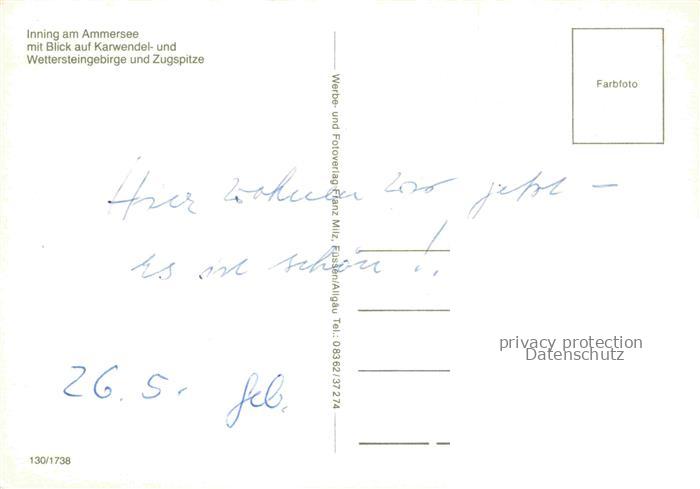 Inning am Ammersee
mit Blick auf Karwendel- und
Wettersteingebirge und Zugspitze
Farbfoto
Werbe- und Fotoverlag Franz Milz, Füssen/Allgäu Tel.: 08362/37274
Hier wohnen wir jetzt –
es ist schön!!
privacy protection
Datenschutz
26. 5. geb.
130/1738